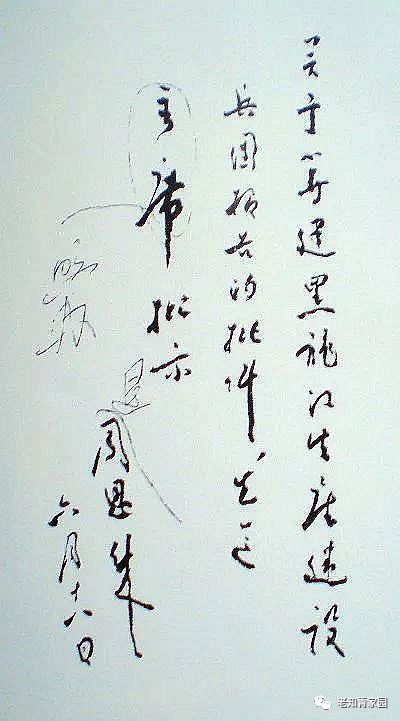 关于筹建黑龙江生产建设
兵团报告的批件,先送
主席批示
周恩来
六月十八日
老知青家园